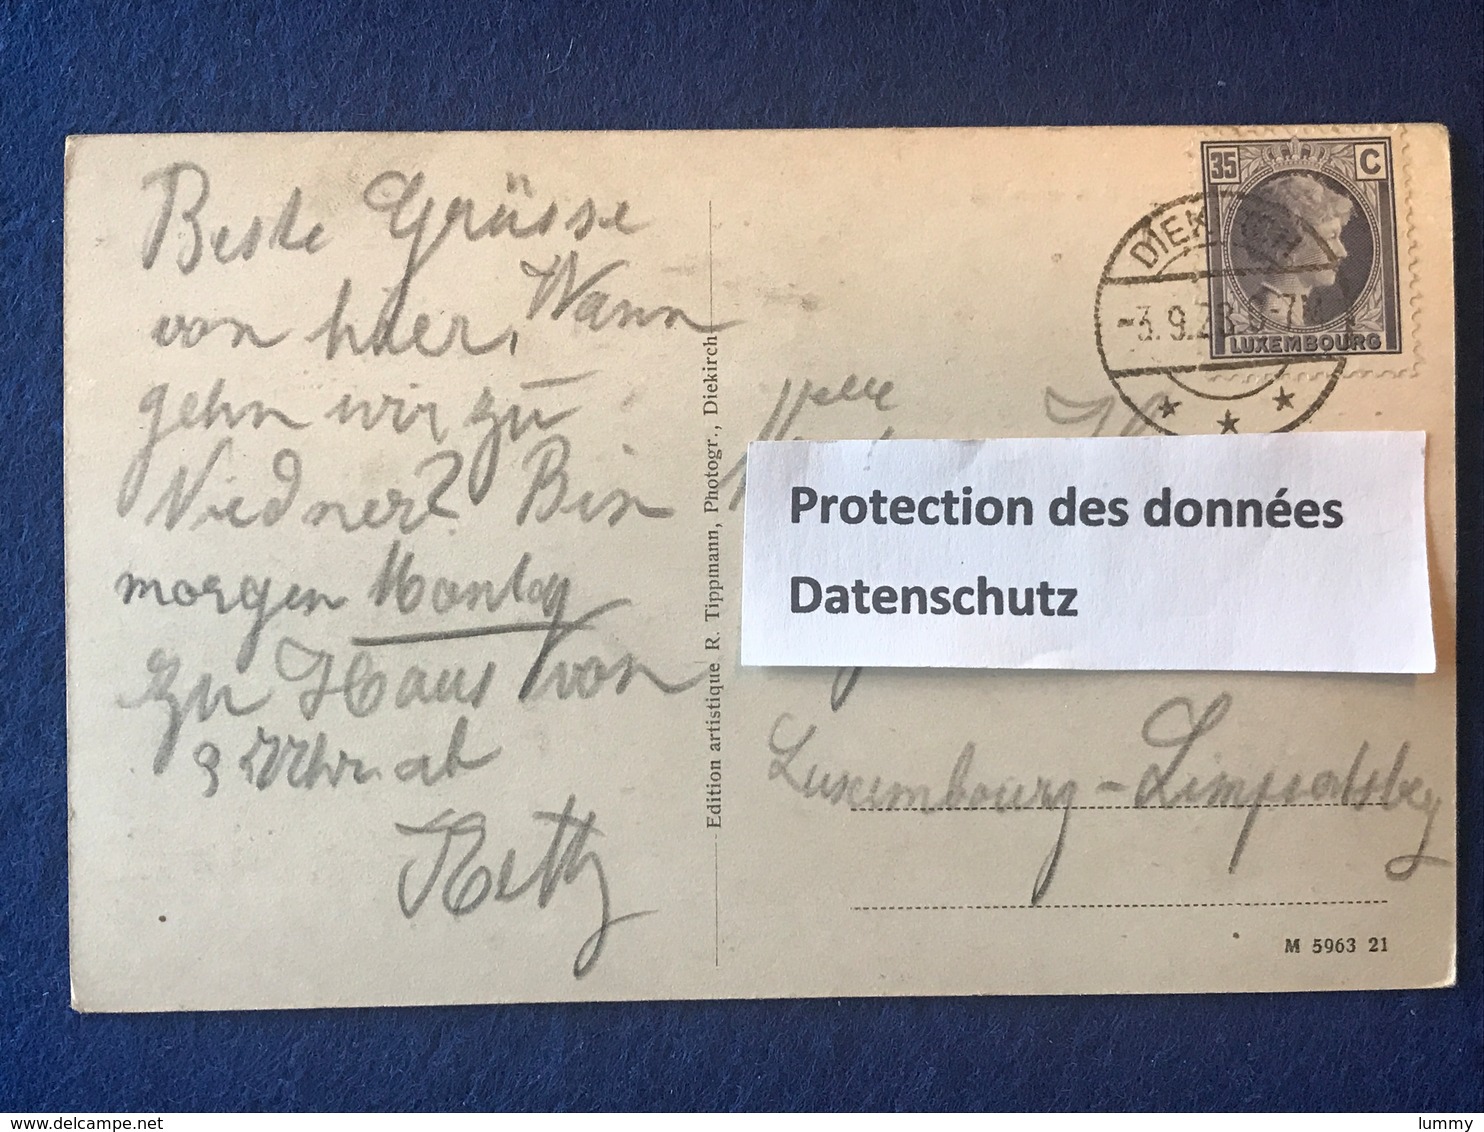 Beste Grüsse
von hier, Wann
gehn wir zu
Niedner? Bin
morgen Montag
zu Haus von
Uhr ab
Ketty
Edition artistique R. Tippmann, Photogr., Diekirch
35 C
LUXEMBOURG
DIEKIRCH
-3.9.28 -7M
Melle
Protection des données
Datenschutz
Luxembourg - Limpertsberg
M 5963 21
delcampe.net
lummy